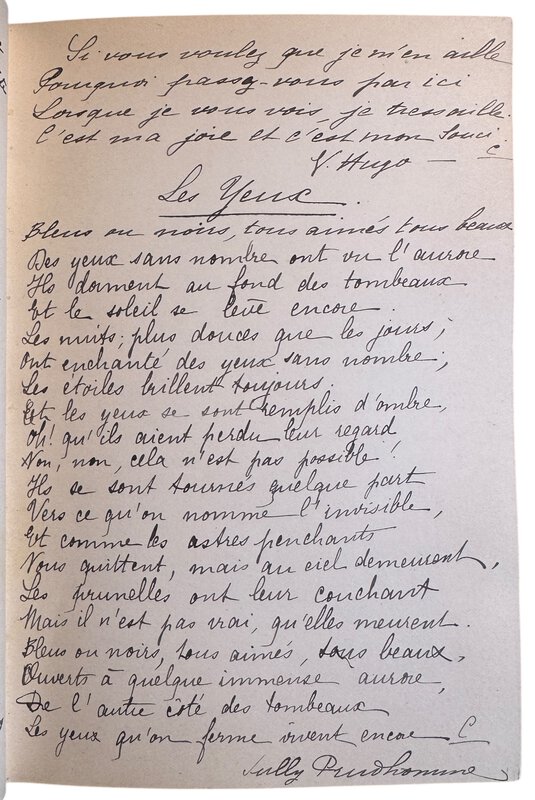 Si vous voulez que je m'en aille
Pourquoi passez-vous par ici
Lorsque je vous vois, je tressaille.
C'est ma joie et c'est mon souci.
C
V. Hugo —
Les Yeux.
Bleus ou noirs, tous aimés tous beaux
Des yeux sans nombre ont vu l'aurore
Ils dorment au fond des tombeaux
Et le soleil se lève encore.
Les nuits, plus douces que les jours,
Ont enchanté des yeux sans nombre,
Les étoiles brillent toujours.
Et les yeux se sont remplis d'ombre,
Oh! qu'ils aient perdu leur regard
Non, non, cela n'est pas possible!
Ils se sont tournés quelque part
Vers ce qu'on nomme l'invisible,
Et comme les astres penchants
Nous quittent, mais au ciel demeurent,
Les prunelles ont leur couchant
Mais il n'est pas vrai, qu'elles meurent.
Bleus ou noirs, tous aimés, tous beaux,
Ouverts à quelque immense aurore,
De l'autre côté des tombeaux
Les yeux qu'on ferme vivent encore C
Sully Prudhomme